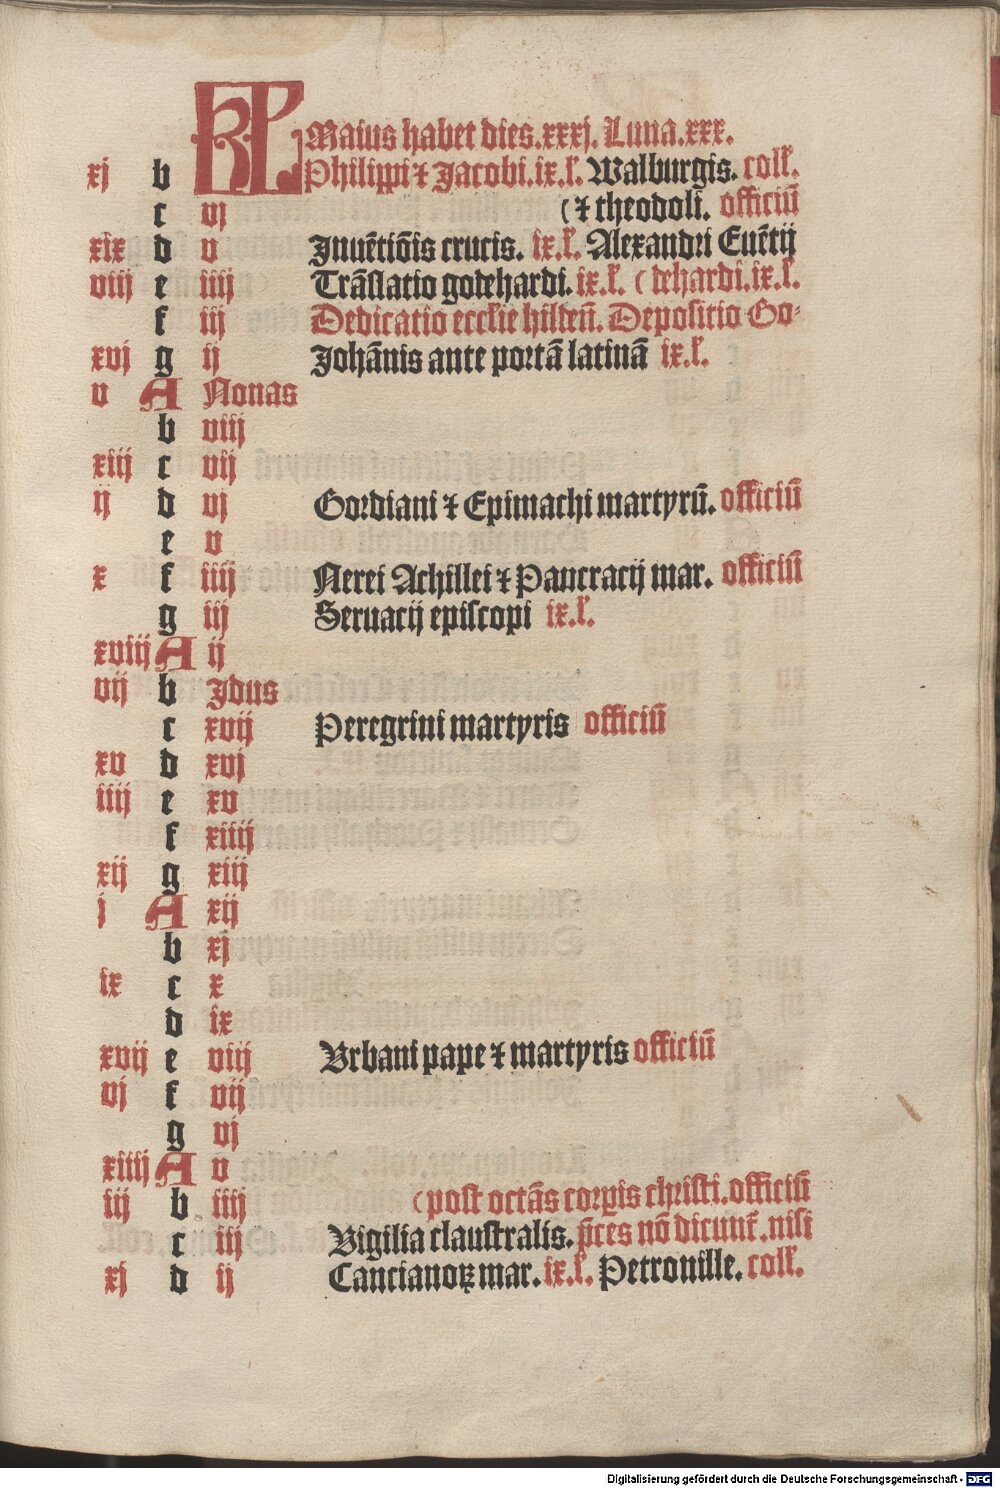 KL Maius habet dies.xxxj. Luna.xxx.
xj b Philippi ⁊ Jacobi.ix.ł. Walburgis. coll̕.
c vj (⁊ theodoli. officiū
xix d v Inuētiōis crucis. ix.ł. Alexandri Euētij
viij e iiij Trāslatio godehardi.ix.ł. (dehardi.ix.ł.
f iij Dedicatio eccl̕ie hildeñ. Depositio Go-
xvj g ij Johānis ante portā latinā ix.ł.
v A Nonas
b viij
xiij c vij
ij d vj Gordiani ⁊ Epimachi martyrū. officiū
e v
x f iiij Nerei Achillei ⁊ Pancracij mar. officiū
g iij Seruacij episcopi ix.ł.
xviij A ij
vij b Jdus
c xvij Peregrini martyris officiū
xv d xvj
iiij e xv
f xiiij
xij g xiij
j A xij
b xj
ix c x
d ix
xvij e viij Vrbani pape ⁊ martyris officiū
vj f vij
g vj
xiiij A v
iij b iiij (post octās corpis christi.officiū
c iij Vigilia claustralis. p̄ces nō dicunt̕.nisi
xj d ij Cancianoꝝ mar.ix.ł. Petronille. coll̕.
Digitalisierung gefördert durch die Deutsche Forschungsgemeinschaft - DFG